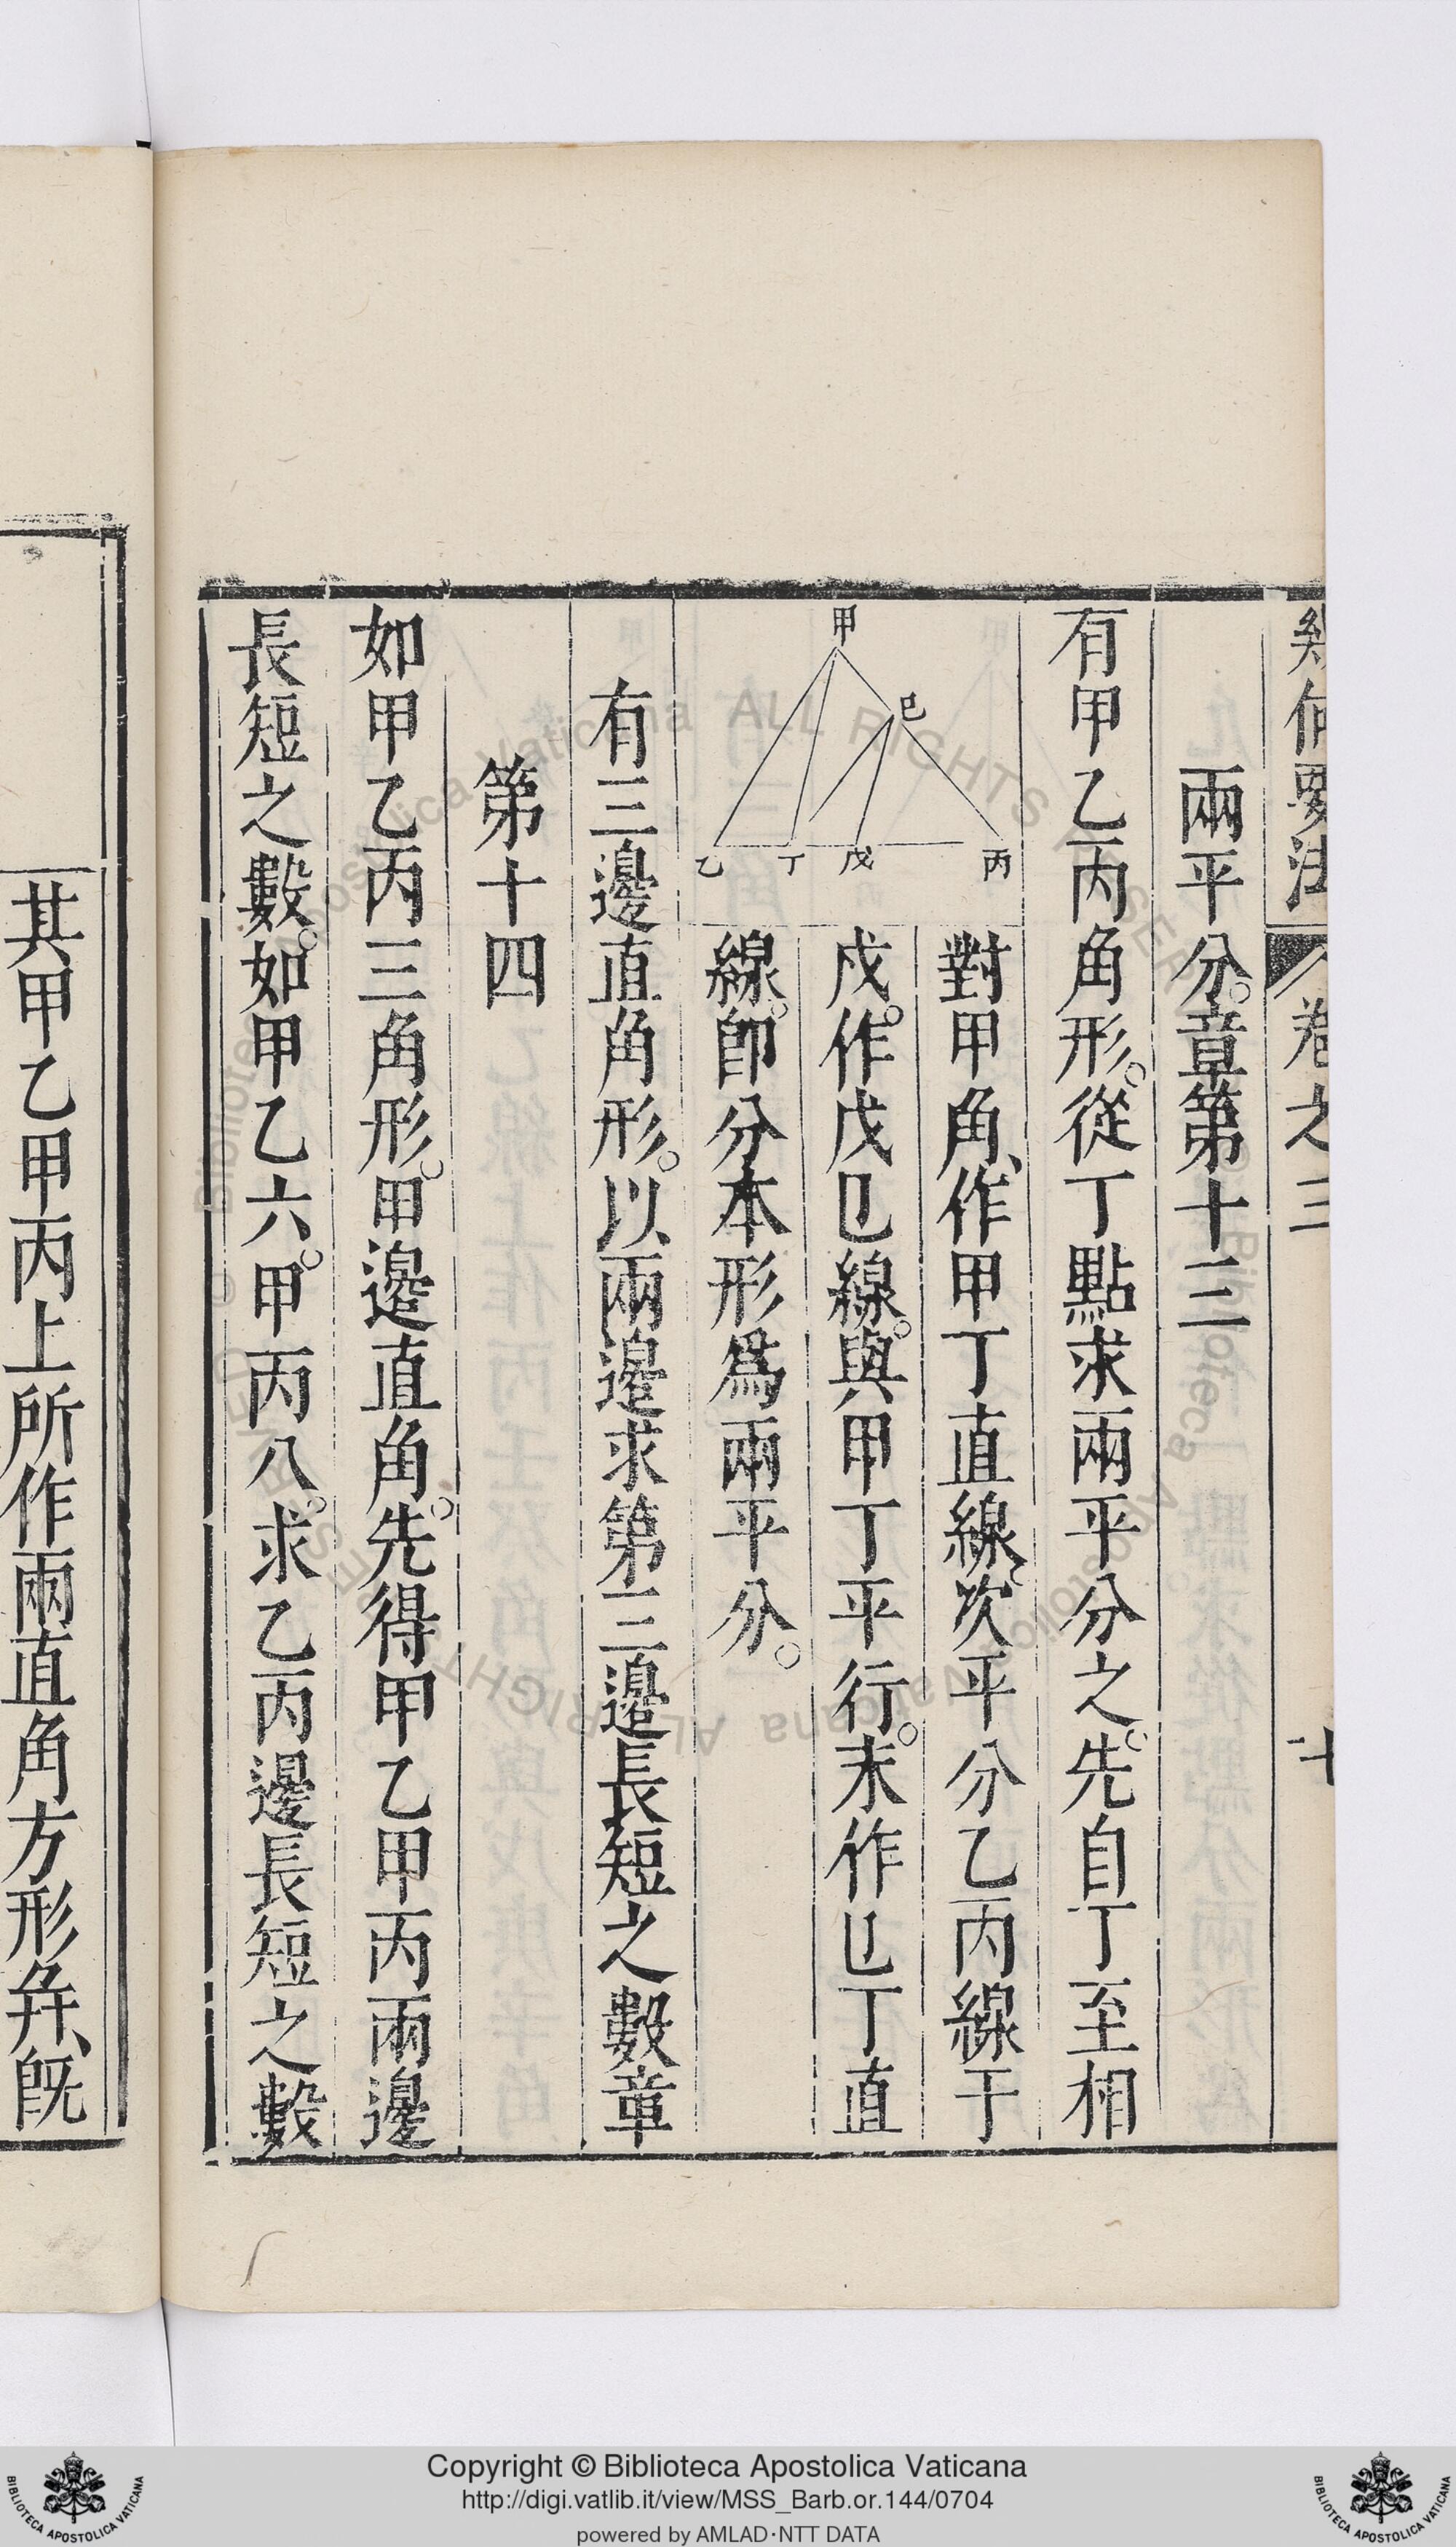 幾何要法 卷之三 十
兩平分。章第十三
有甲乙丙角形。從丁點求兩平分之。先自丁至相
甲
巳
乙 丁 戊 丙
對甲角、作甲丁直線、次平分乙丙線于
戊。作戊巳線。與甲丁平行。末作巳丁直
線。卽分本形爲兩平分。
有三邊直角形。以兩邊求第三邊長短之數章
第十四
如甲乙丙三角形。甲邊直角。先得甲乙甲丙兩邊
長短之數。如甲乙六。甲丙八。求乙丙邊長短之數
其甲乙甲丙上所作兩直角方形幷、旣
Copyright © Biblioteca Apostolica Vaticana
http://digi.vatlib.it/view/MSS_Barb.or.144/0704
powered by AMLAD·NTT DATA
BIBLIOTECA APOSTOLICA VATICANA
BIBLIOTECA APOSTOLICA VATICANA